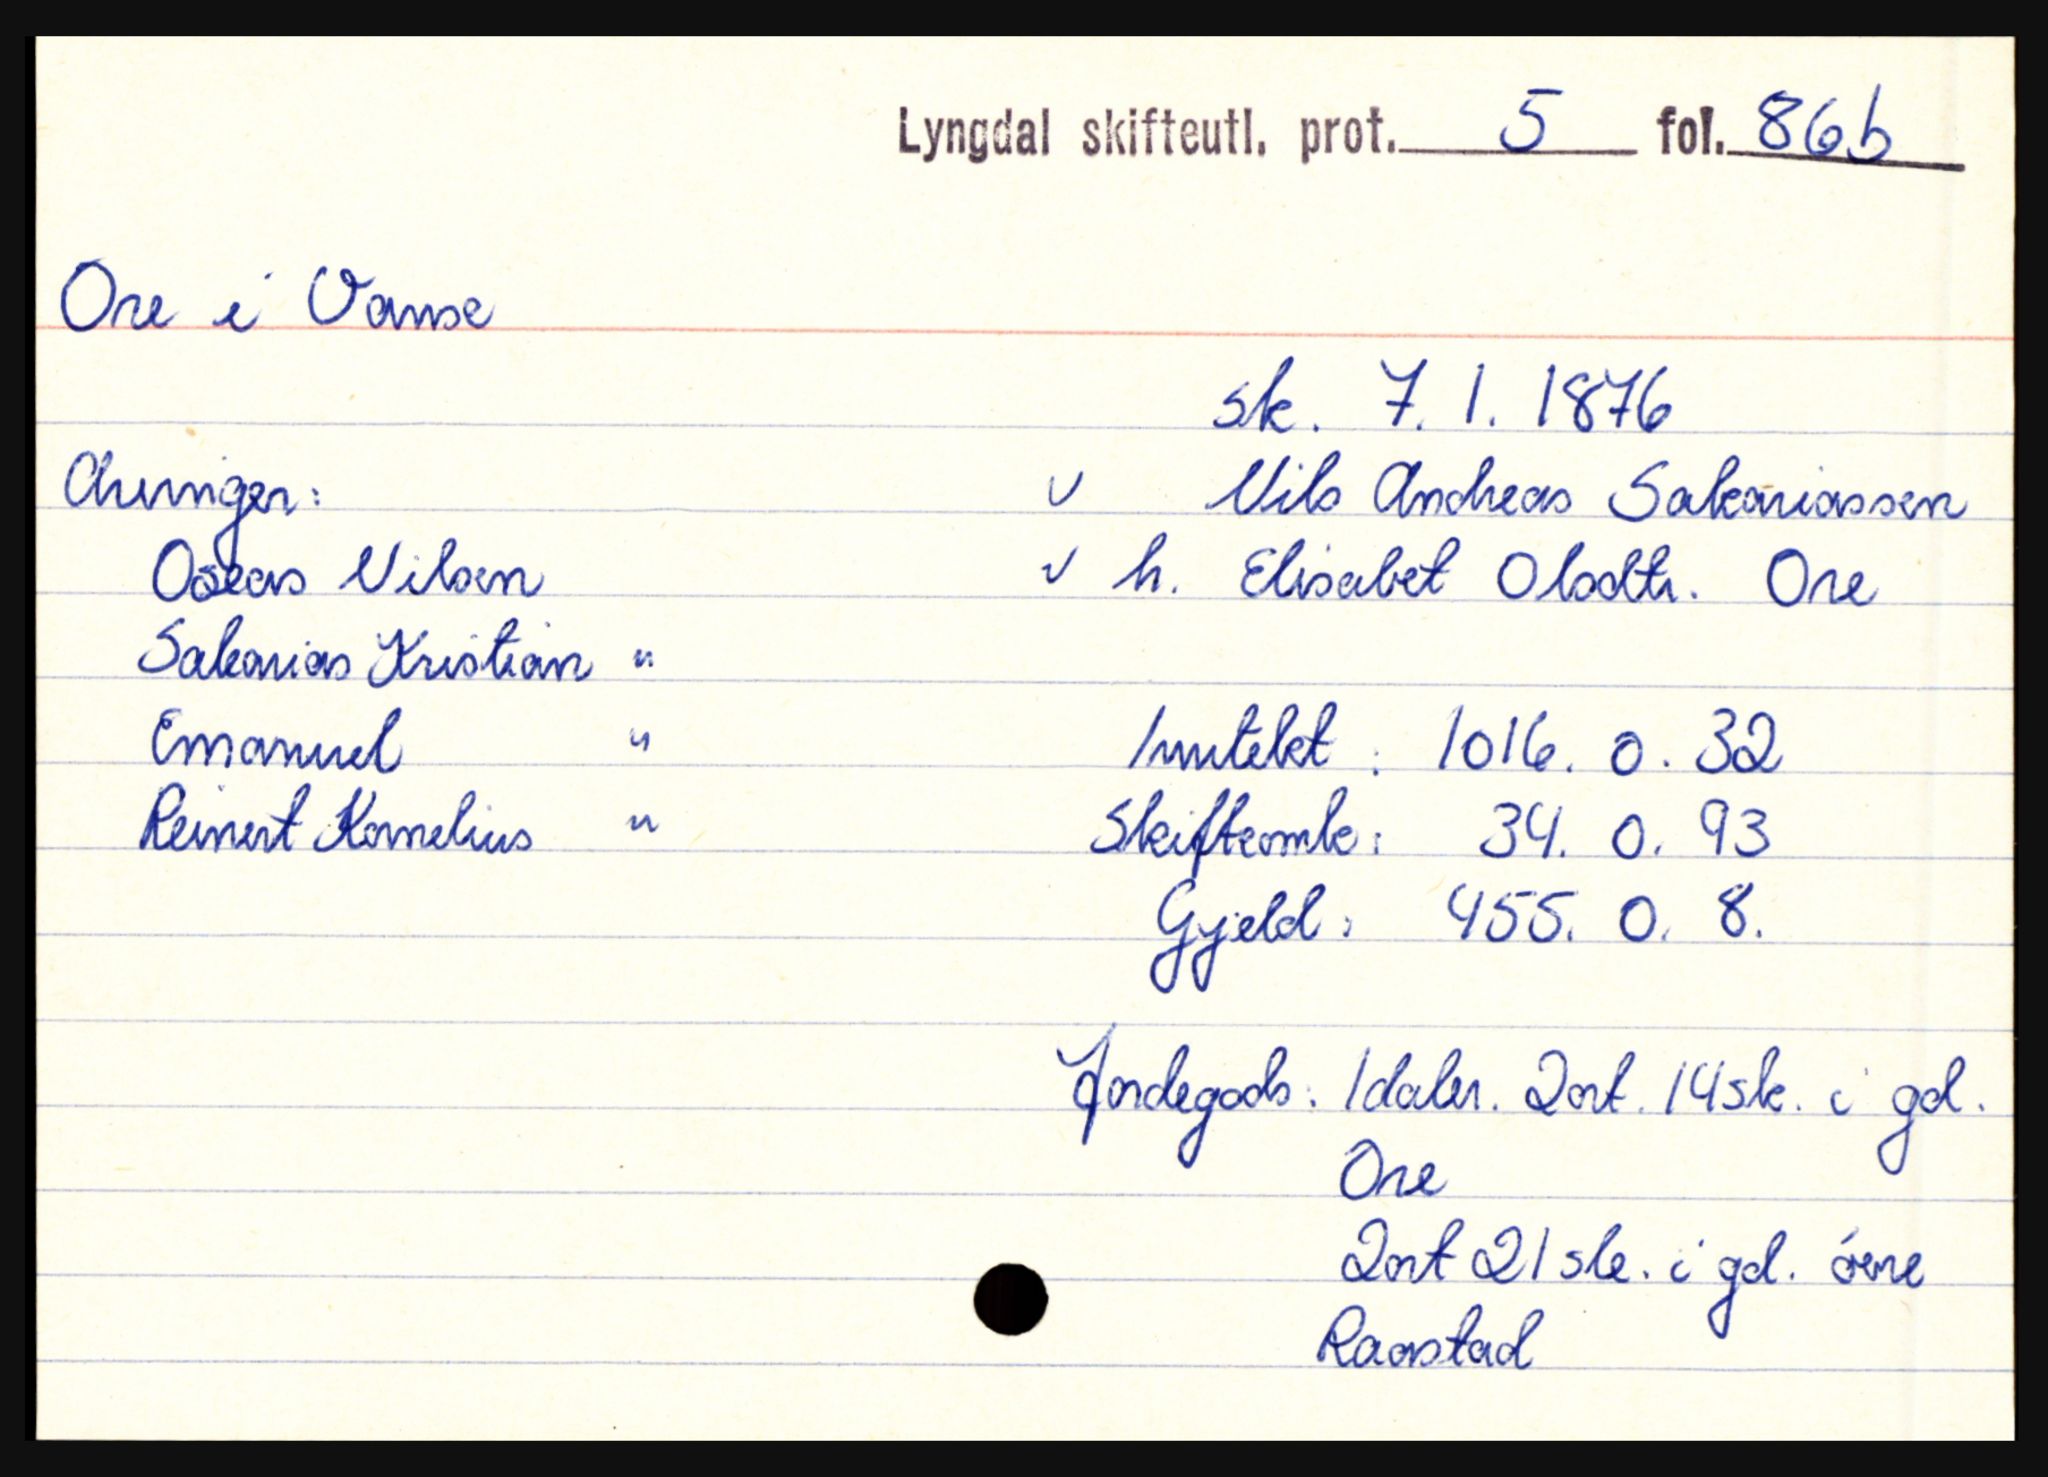 Lyngdal skifteutl. prot. 5 fol. 86b
Ore i Vanse
sk. 7. 1. 1876
Arvinger: v Nils Andreas Sakariassen
Oseas Nilsen v h. Elisabet Olsdtr. Ore
Sakarias Kristian "
Emanuel " Inntekt : 1016. 0. 32
Reinert Kornelius " Skifteomk : 34. 0. 93
Gjeld : 455. 0. 8.
Jordegods : 1 daler. 2 ort. 14 sk. i gd.
Ore
2 ort 21 sk. i gd. óvre
Raastad